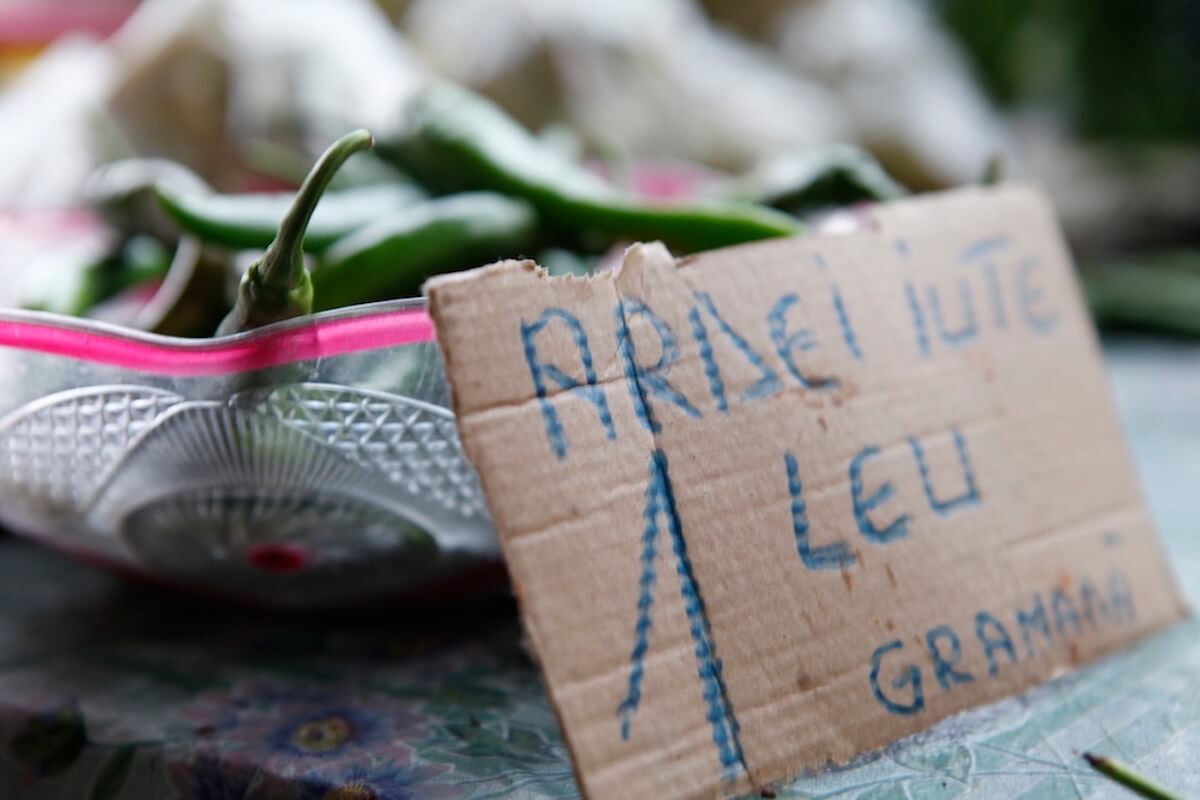 ARDEI IUTE
1 LEU
GRAMADĂ